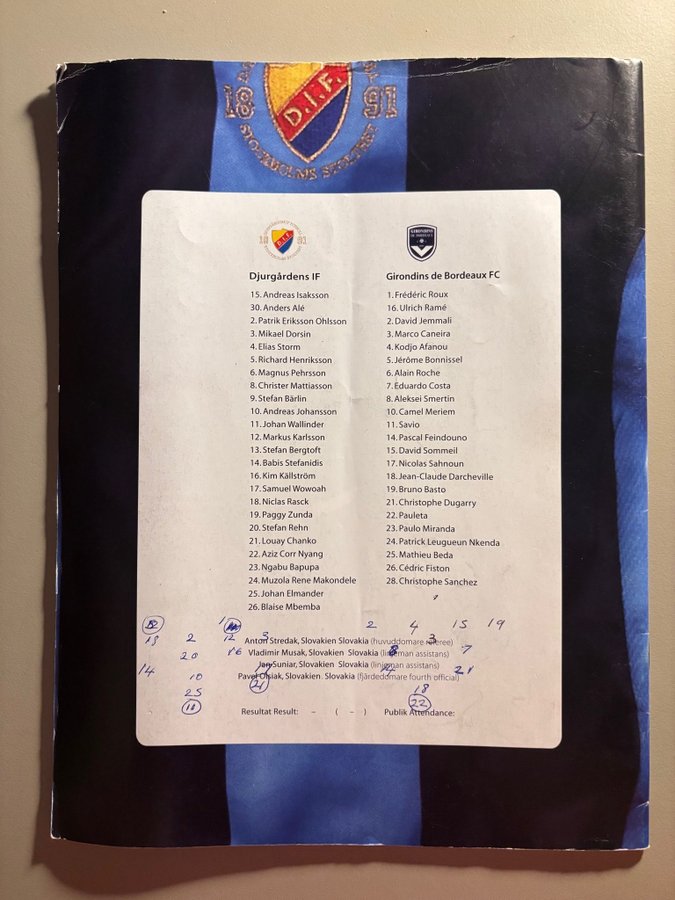 18 91
D.I.F.
STOCKHOLMS STOLTHET
18 91
D.I.F.
GIRONDINS
DE BORDEAUX
Djurgårdens IF
15. Andreas Isaksson
30. Anders Alé
2. Patrik Eriksson Ohlsson
3. Mikael Dorsin
4. Elias Storm
5. Richard Henriksson
6. Magnus Pehrsson
8. Christer Mattiasson
9. Stefan Bärlin
10. Andreas Johansson
11. Johan Wallinder
12. Markus Karlsson
13. Stefan Bergtoft
14. Babis Stefanidis
16. Kim Källström
17. Samuel Wowoah
18. Niclas Rasck
19. Paggy Zunda
20. Stefan Rehn
21. Louay Chanko
22. Aziz Corr Nyang
23. Ngabu Bapupa
24. Muzola Rene Makondele
25. Johan Elmander
26. Blaise Mbemba
Girondins de Bordeaux FC
1. Frédéric Roux
16. Ulrich Ramé
2. David Jemmali
3. Marco Caneira
4. Kodjo Afanou
5. Jérôme Bonnissel
6. Alain Roche
7. Eduardo Costa
8. Aleksei Smertin
10. Camel Meriem
11. Savio
14. Pascal Feindouno
15. David Sommeil
17. Nicolas Sahnoun
18. Jean-Claude Darcheville
19. Bruno Basto
21. Christophe Dugarry
22. Pauleta
23. Paulo Miranda
24. Patrick Leugueun Nkenda
25. Mathieu Beda
26. Cédric Fiston
28. Christophe Sanchez
2 4 15 19
18 2 12 3
Anton Stredak, Slovakien Slovakia (huvuddomare referee)
3
20 16 8 7
Vladimir Musak, Slovakien Slovakia (linjeman assistans)
Jan Suniar, Slovakien Slovakia (linjeman assistans)
14 21
Pavel Olsiak, Slovakien Slovakia (fjärdedomare fourth official)
10 21
25 18
22
Resultat Result: – ( – ) Publik Attendance: